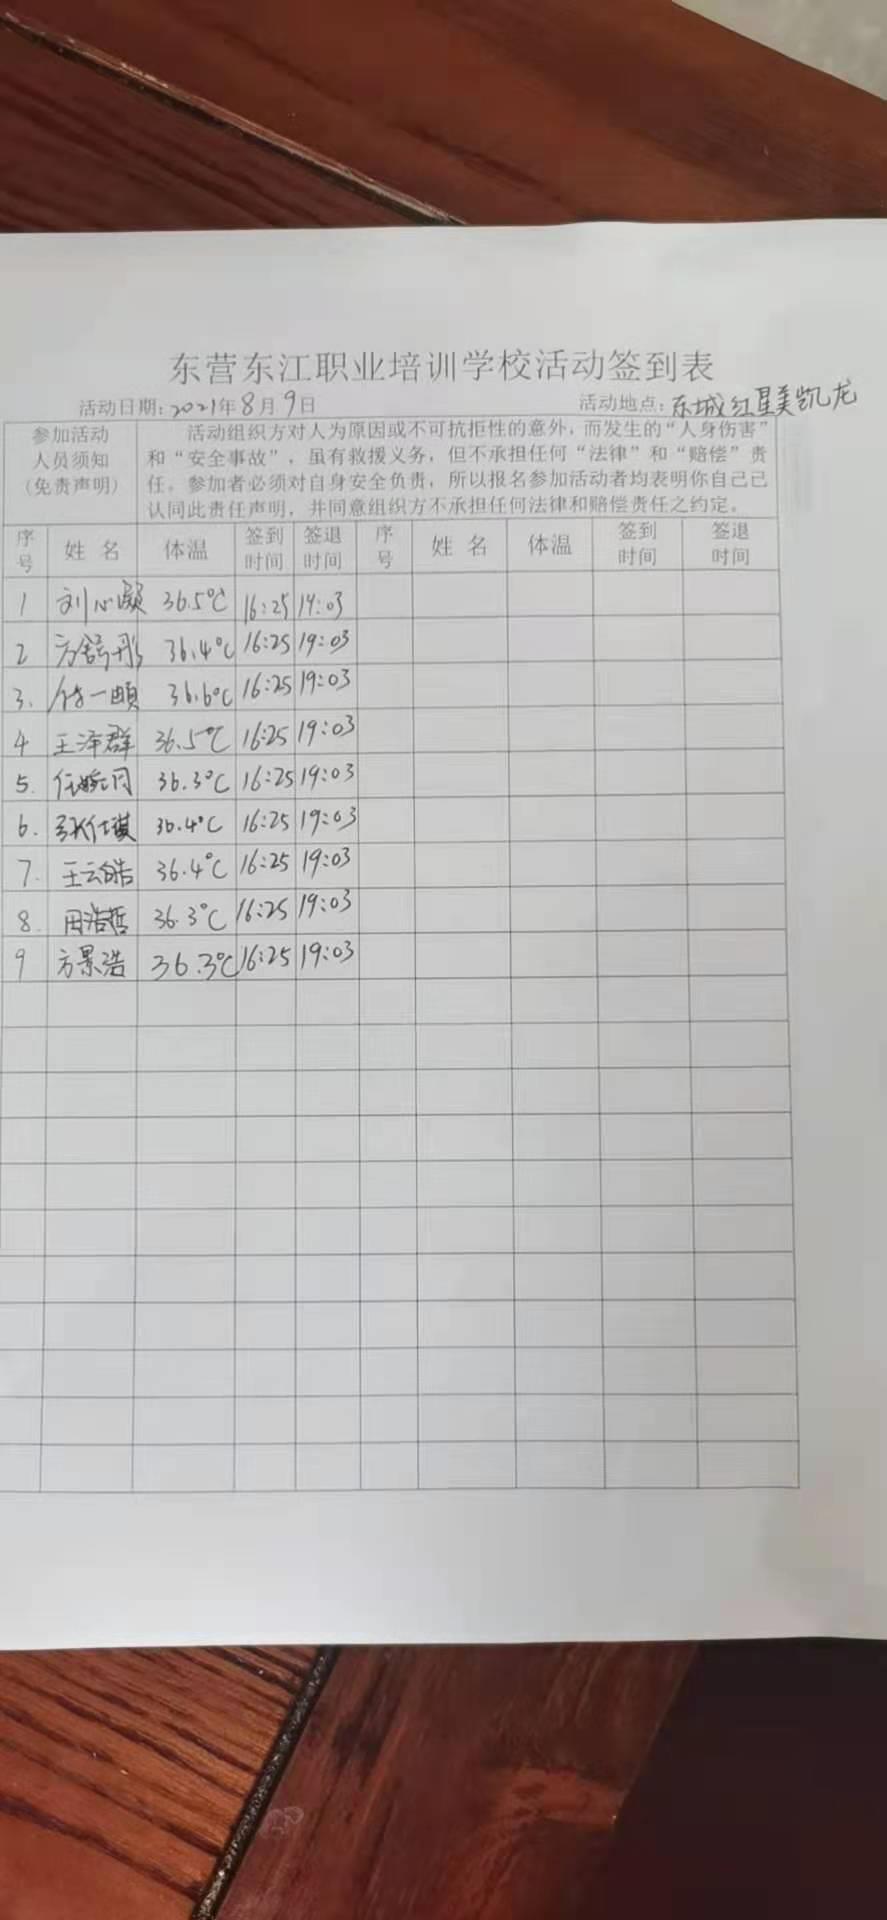 东营东江职业培训学校活动签到表
活动日期:2021年8月9日 活动地点:东城红星美凯龙
参加活动人员须知(免责声明)
活动组织方对人为原因或不可抗拒性的意外,而发生的“人身伤害”
和“安全事故”,虽有救援义务,但不承担任何“法律”和“赔偿”责
任。参加者必须对自身安全负责,所以报名参加活动者均表明你自己已
认同此责任声明,并同意组织方不承担任何法律和赔偿责任之约定。
序号 姓名 体温 签到时间 签退时间 序号 姓名 体温 签到时间 签退时间
1 刘心凝 36.5℃ 16:25 19:03
2 方舒彤 36.4℃ 16:25 19:03
3. 付一頔 36.6℃ 16:25 19:03
4 王泽群 36.5℃ 16:25 19:03
5. 36.3℃ 16:25 19:03
6. 张仕祺 36.4℃ 16:25 19:03
7. 王云皓 36.4℃ 16:25 19:03
8. 田浩哲 36.3℃ 16:25 19:03
9 方景浩 36.3℃ 16:25 19:03